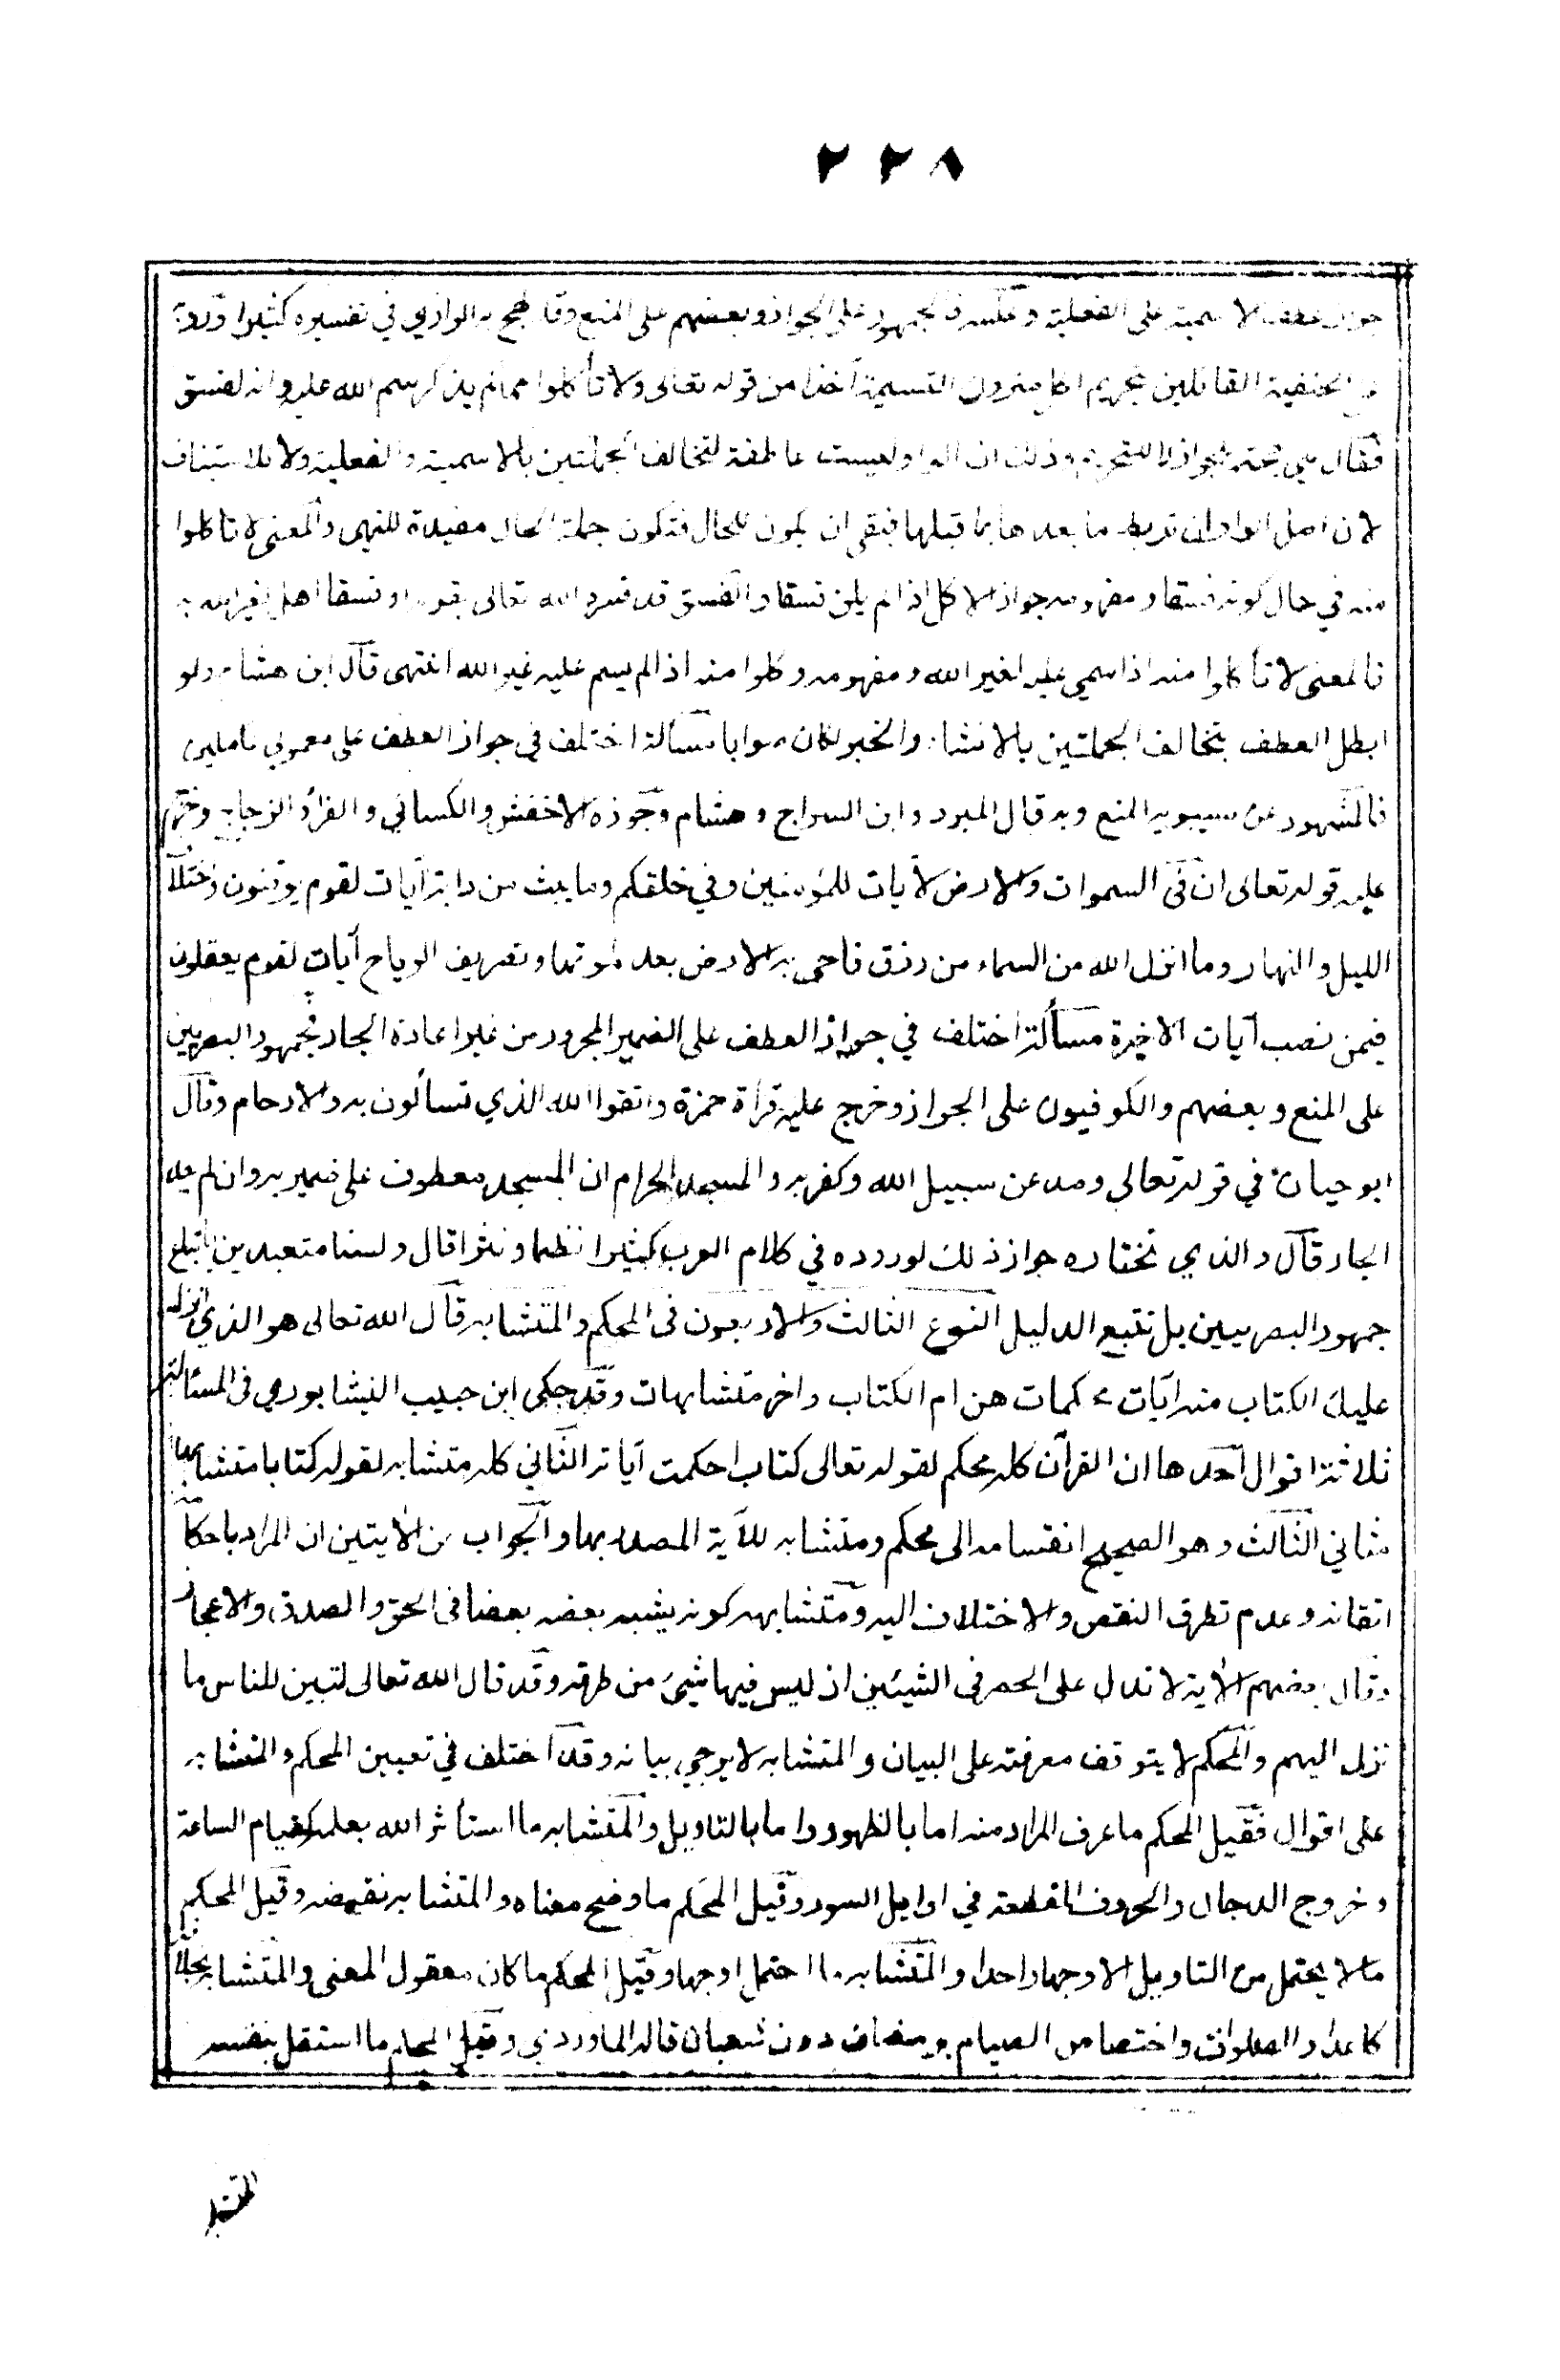 ٢٢٨
جواز عطف الاسمية على الفعلية وعكسه فالجمهور على الجواز وبعضهم على المنع وقد لهج به الرازي في تفسيره كثيرا ورد به
على الحنفية القائلين بتحريم اكل متروك التسمية اخذا من قوله تعالى ولا تأكلوا مما لم يذكر اسم الله عليه وانه لفسق
فقال هي حجة للجواز لا للتحريم وذلك ان الواو ليست عاطفة لتخالف الجملتين بالاسمية والفعلية ولا للاستيناف
لان اصل الواو ان تربط ما بعدها بما قبلها فبقي ان يكون للحال فتكون جملة الحال مفيدة للنهي والمعنى لا تاكلوا
منه في حال كونه فسقا ومفهومه جواز الاكل اذا لم يكن فسقا والفسق قد فسره الله تعالى بقوله او فسقا اهل لغير الله به
فالمعنى لا تأكلوا منه اذا سمي عليه لغير الله ومفهومه وكلوا منه اذا لم يسم عليه غير الله انتهى قال ابن هشام ولو
ابطل العطف بتخالف الجملتين بالانشاء والخبر لكان صوابا مسألة اختلف في جواز العطف على معمولي عاملين
فالمشهور عن سيبويه المنع وبه قال المبرد وابن السراج وهشام وجوزه الاخفش والكسائي والفراء والزجاج وخرج
عليه قوله تعالى ان في السموات والارض لآيات للمؤمنين وفي خلقكم وما يبث من دابة آيات لقوم يوقنون واختلاف
الليل والنهار وما انزل الله من السماء من رزق فاحي به الارض بعد موتها وتصريف الرياح آيات لقوم يعقلون
فيمن نصب آيات الاخيرة مسألة اختلف في جواز العطف على الضمير المجرور من غير اعادة الجار فجمهور البصريين
على المنع وبعضهم والكوفيون على الجواز وخرج عليه قراة حمزة واتقوا الله الذي تسألون به والارحام وقال
ابو حيان في قوله تعالى وصد عن سبيل الله وكفر به والمسجد الحرام ان المسجد معطوف على ضمير به وان لم يعد
الجار قال والذي نختاره جواز ذلك لوروده في كلام العرب كثيرا نظما ونثرا قال ولسنا متعبدين باتباع
جمهور البصريين بل نتبع الدليل النوع الثالث والاربعون في المحكم والمتشابه قال الله تعالى هو الذي انزل
عليك الكتاب منه آيات محكمات هن ام الكتاب واخر متشابهات وقد حكى ابن حبيب النيشابوري في المسئالة
ثلاثة اقوال احدها ان القرآن كله محكم لقوله تعالى كتاب احكمت آياته الثاني كله متشابه لقوله كتابا متشابها
مثاني الثالث وهو الصحيح انقسامه الى محكم ومتشابه للآية المصدر بها والجواب عن الايتين ان المراد باحكامه
اتقانه وعدم تطرق النقص والاختلاف اليه ومتشابهه كونه يشبه بعضه بعضا في الحق والصدق والاعجاز
وقال بعضهم الآية لا تدل على الحصر في الشيئين اذ ليس فيها شيئ من طرقه وقد قال الله تعالى لتبين للناس ما
نزل اليهم والمحكم لا يتوقف معرفته على البيان والمتشابه لا يرجى بيانه وقد اختلف في تعيين المحكم والمتشابه
على اقوال فقيل المحكم ما عرف المراد منه اما بالظهور واما بالتاويل والمتشابه ما استأثر الله بعلمه كقيام الساعة
وخروج الدجال والحروف المقطعة في اوايل السور وقيل المحكم ما وضح معناه والمتشابه نقيضه وقيل المحكم
مالا يحتمل من التاويل الا وجها واحدا والمتشابه ما احتمل اوجها وقيل المحكم ما كان معقول المعنى والمتشابه بخلافه
كاعداد الصلوات واختصاص الصيام برمضان دون شعبان قاله الماوردي وقيل المحكم ما استقل بنفسه